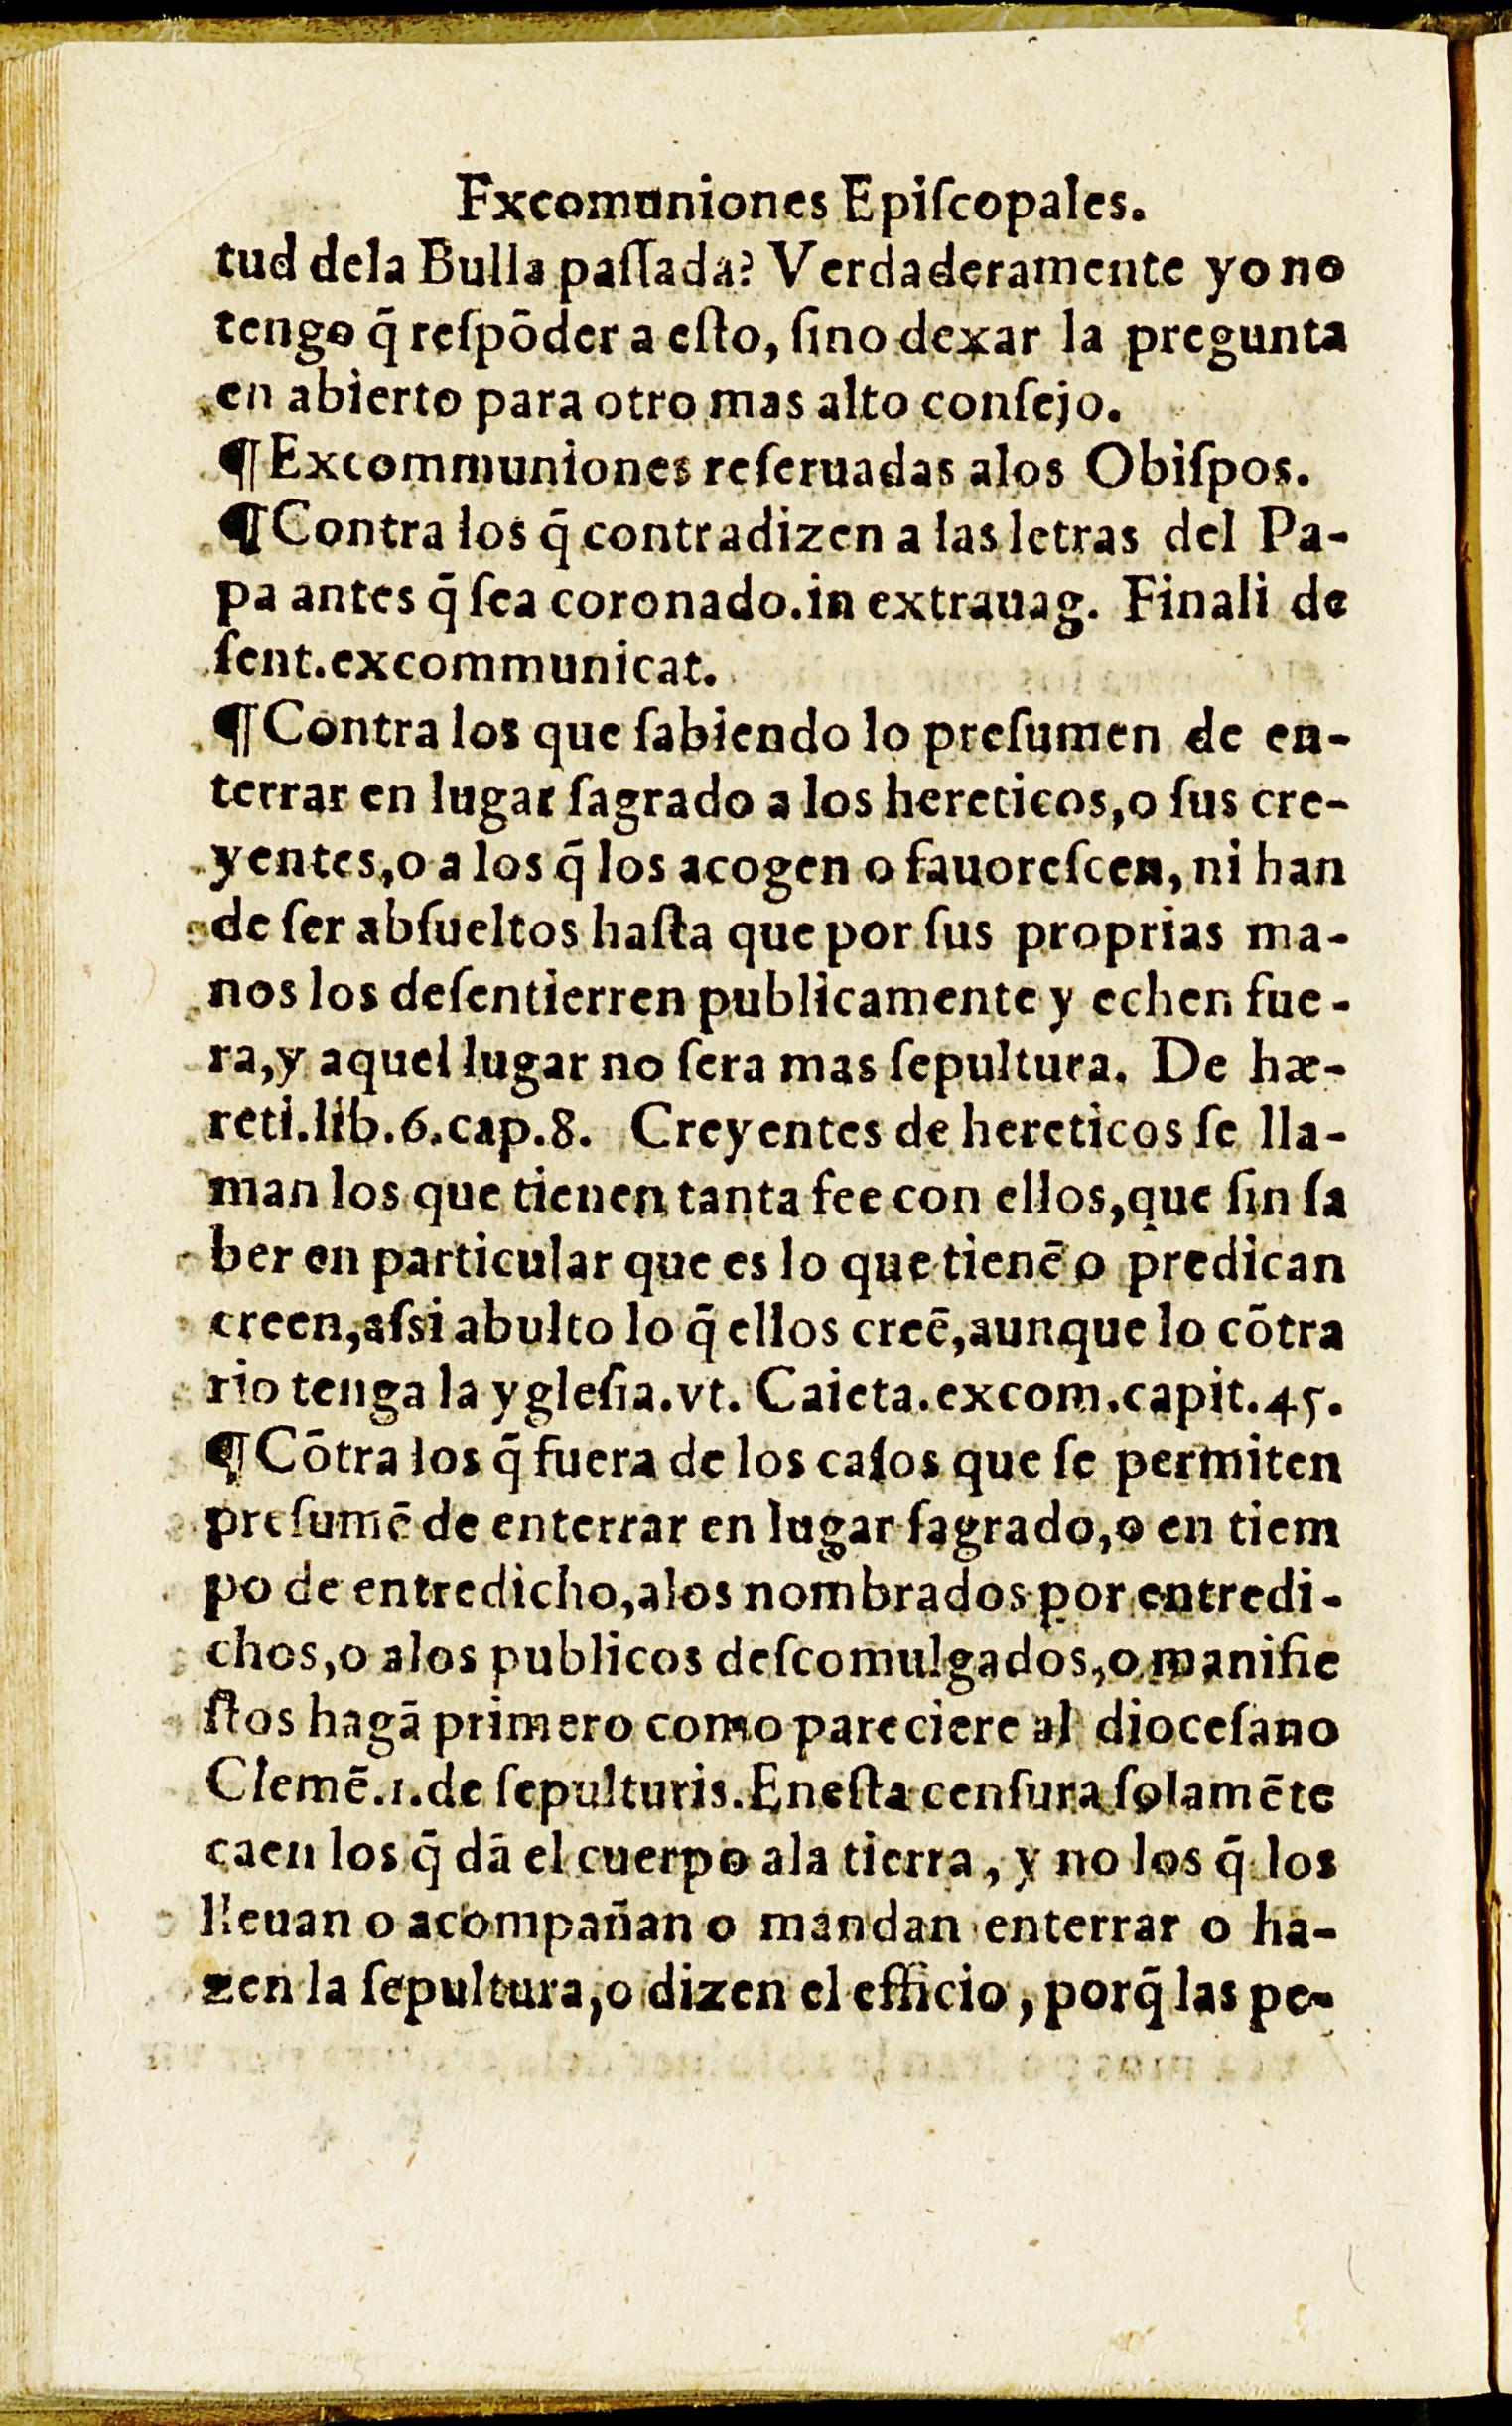 Fxcomuniones Epiſcopales.
tud dela Bulla paſſada? Verdaderamente yo no
tengo q̃ reſpõder a eſto, ſino dexar la pregunta
en abierto para otro mas alto conſejo.
¶Excommuniones reſeruadas alos Obiſpos.
¶Contra los q̃ contradizen a las letras del Pa-
pa antes q̃ ſea coronado.in extrauag. Finali de
ſent.excommunicat.
¶Contra los que ſabiendo lo preſumen de en-
terrar en lugar ſagrado a los hereticos,o ſus cre-
yentes,o a los q̃ los acogen o fauoreſcen, ni han
de ſer abſueltos haſta que por ſus proprias ma-
nos los deſentierren publicamente y echen fue-
ra,y aquel lugar no ſera mas ſepultura. De hæ-
reti.lib.6.cap.8. Creyentes de hereticos ſe lla-
man los que tienen tanta fee con ellos,que ſin ſa
ber en particular que es lo que tienẽ o predican
creen,aſsi abulto lo q̃ ellos creẽ,aunque lo cõtra
rio tenga la ygleſia.vt. Caieta.excom.capit.45.
¶Cõtra los q̃ fuera de los caſos que ſe permiten
preſumẽ de enterrar en lugar ſagrado,o en tiem
po de entredicho,alos nombrados por entredi-
chos,o alos publicos deſcomulgados,o manifie
ſtos hagã primero como pareciere al dioceſano
Clemẽ.1.de ſepulturis.Eneſta cenſura ſolamẽte
caen los q̃ dã el cuerpo ala tierra, y no los q̃ los
lleuan o acompañan o mandan enterrar o ha-
zen la ſepultura,o dizen el efficio, porq̃ las pe-